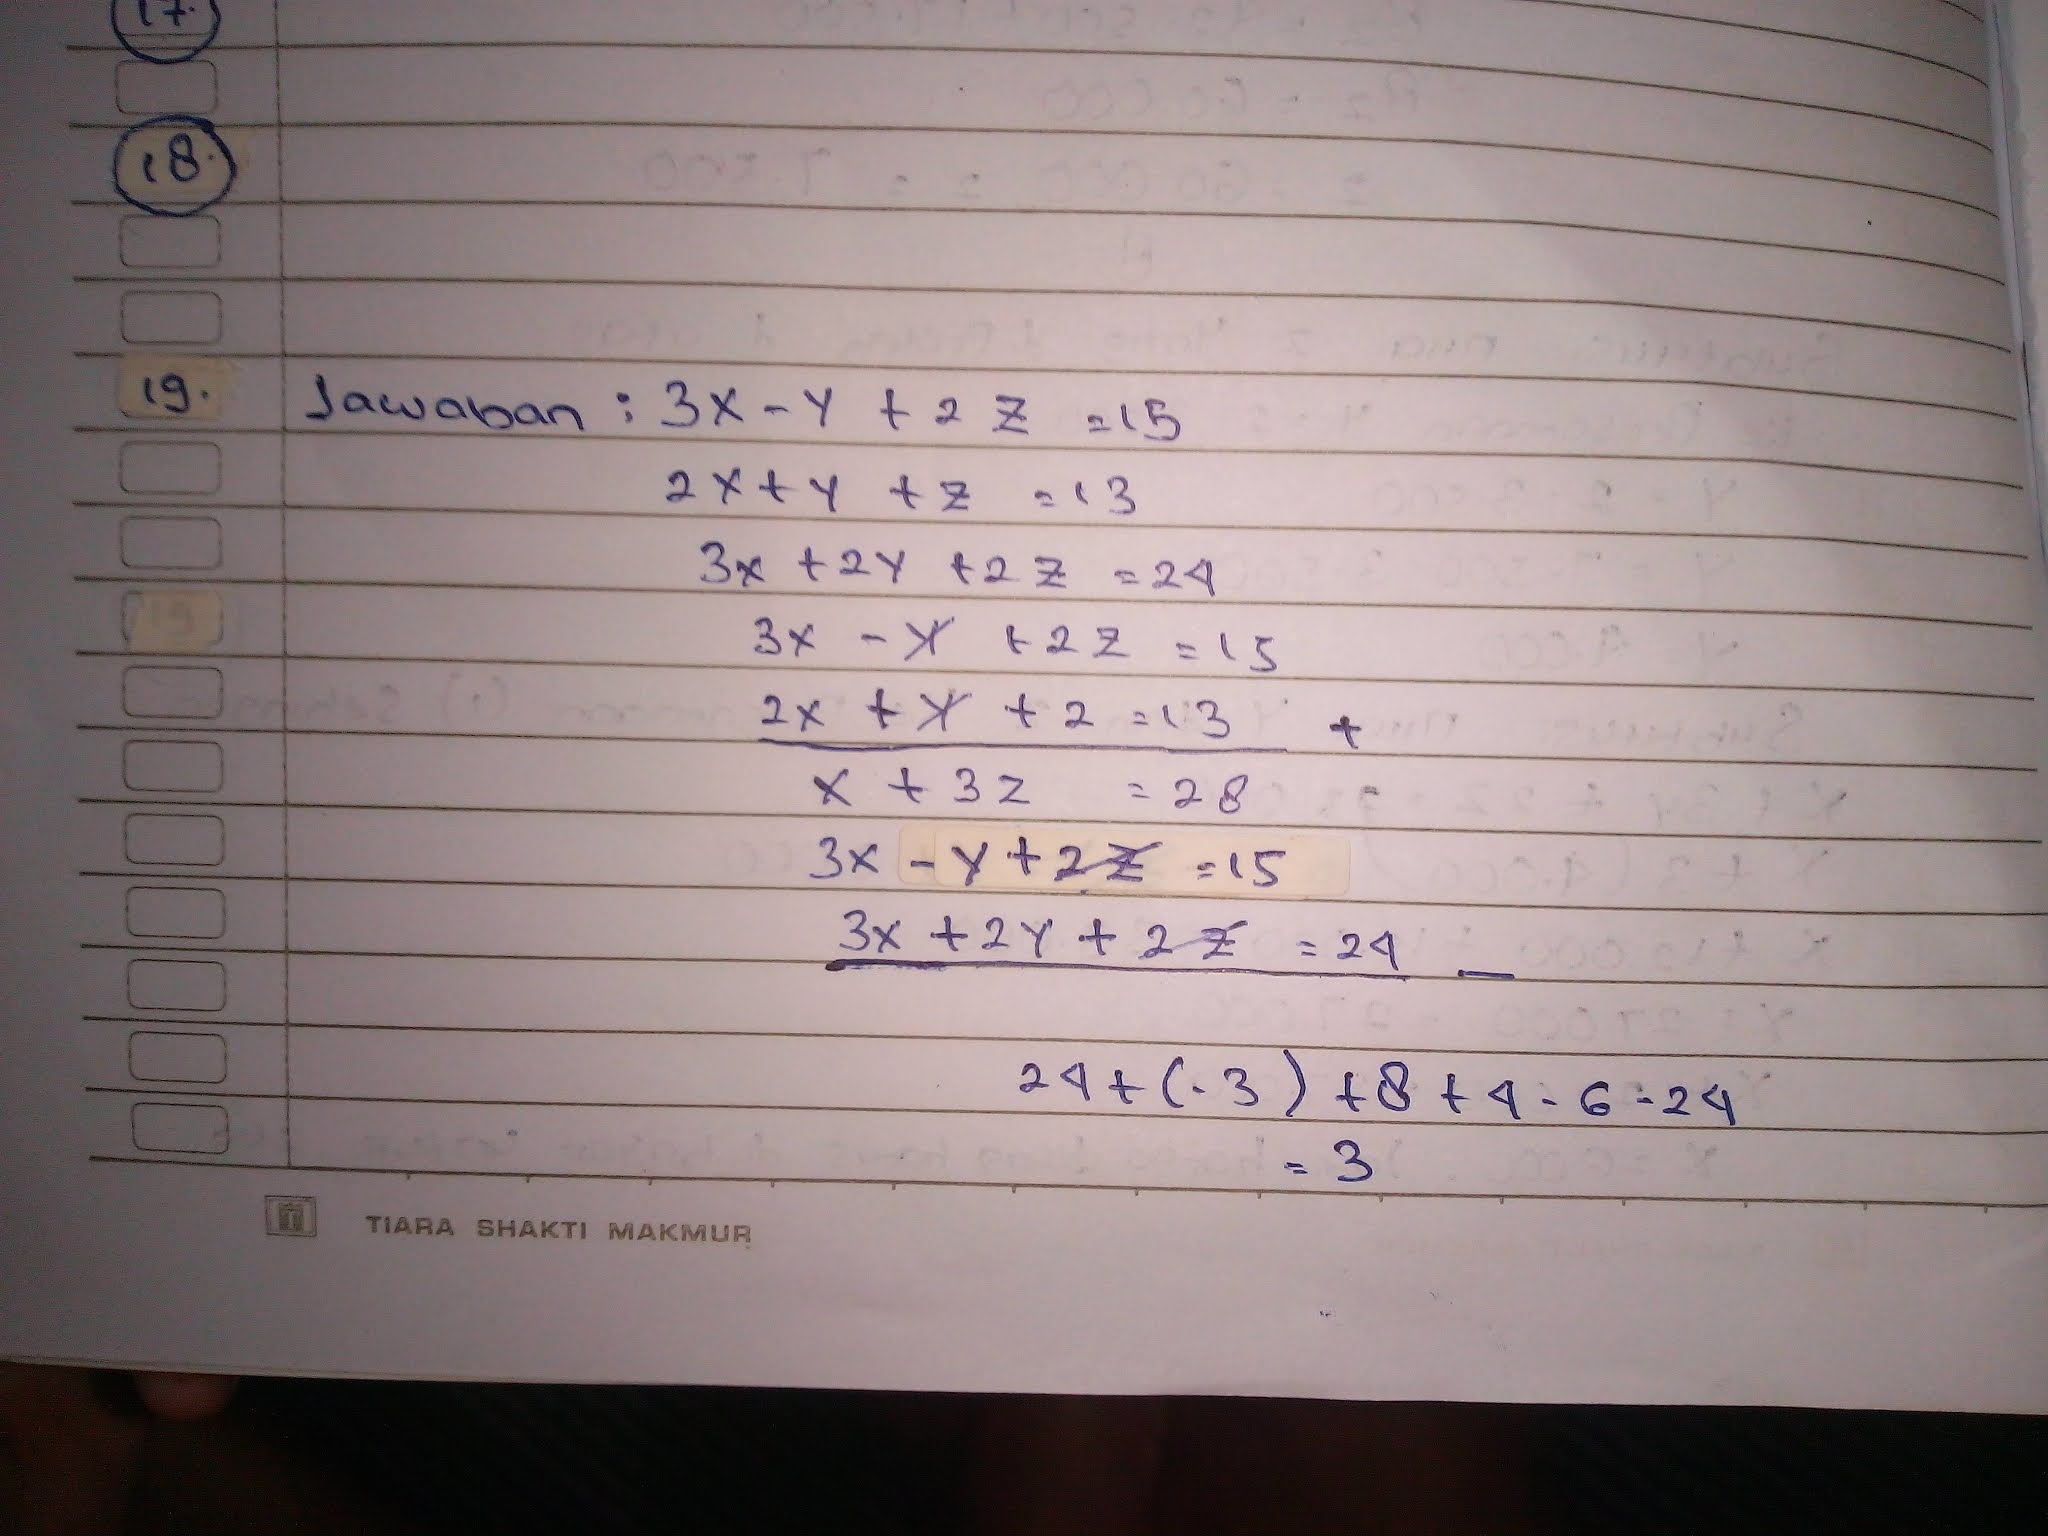 17.
18.
19. Jawaban : 3x - y + 2 z = 15
2x + y + z = 13
3x + 2y + 2z = 24
3x - y + 2z = 15
2x + y + 2 = 13 +
x + 3z = 28
3x - y + 2z = 15
3x + 2y + 2z = 24 —
24 + (-3) + 8 + 4 - 6 = 24
= 3
TIARA SHAKTI MAKMUR